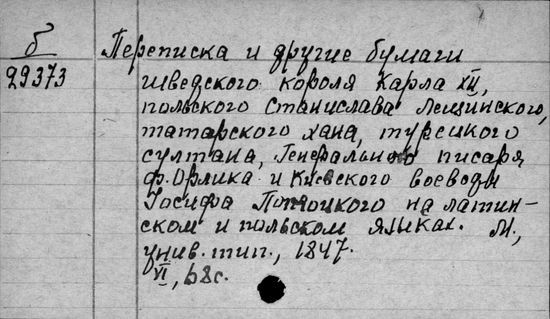 б
29373
Переписка и другие бумаги
шведского короля Карла XII,
польского Станислава Лещинского,
татарского хана, турецкого
султана, Генерального писаря
ф. Орлика и Киевского воеводы
Iосифа Потоцкого на латин-
ском и польском языках. М.,
унив. тип., 1847.
VI, 68с.